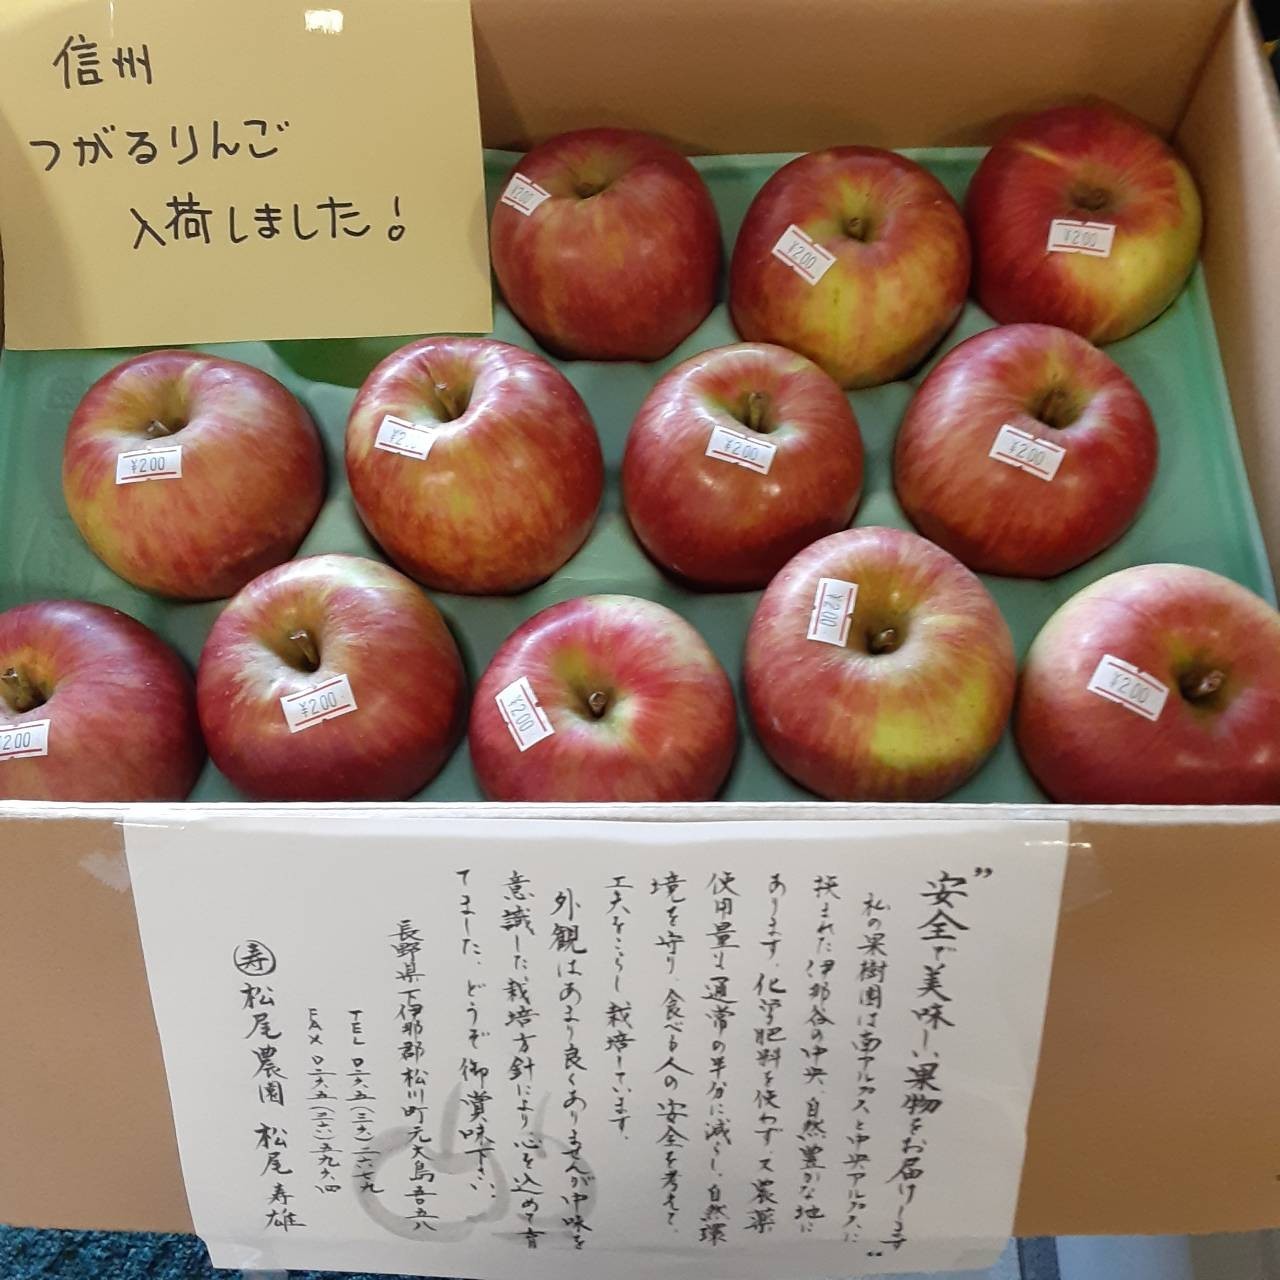 信州
つがるりんご
入荷しました!
¥200
¥200
¥200
¥200
¥2
¥200
¥200
¥200
¥200
¥200
¥200
¥200
"安全で美味しい果物をお届けします"
私の果樹園は南アルプスと中央アルプスに
挟まれた伊那谷の中央、自然豊かな地に
あります。化学肥料を使わず、又農薬
使用量も通常の半分に減らし、自然環
境を守り、食べる人の安全を考えて、
工夫をこらし栽培しています。
外観はあまり良くありませんが中味を
意識した栽培方針により、心を込めて育
てました。どうぞ御賞味下さい。
長野県下伊那郡松川町元大島
TEL
FAX
寿 松尾農園 松尾寿雄